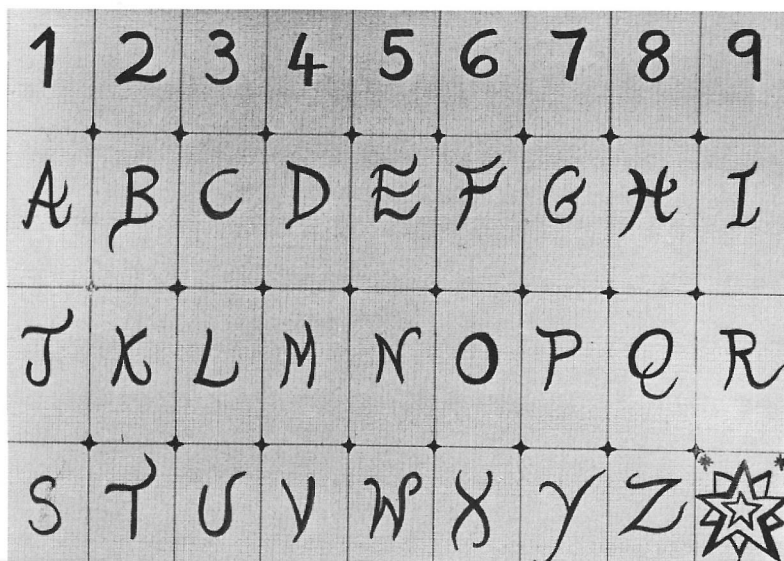 1 2 3 4 5 6 7 8 9
A B C D E F G H I
J K L M N O P Q R
S T U V W X Y Z